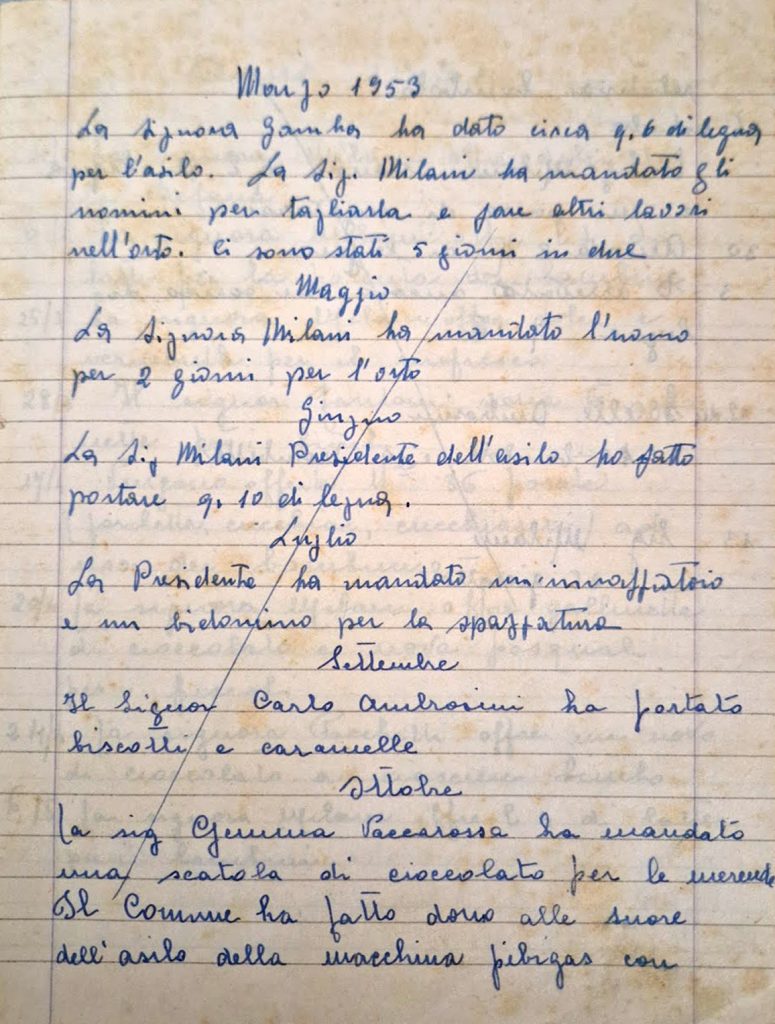 Marzo 1953
La Signora Gamba ha dato circa q. 6 di legna
per l'asilo. La Sig. Milani ha mandato gli
uomini per tagliarla e fare altri lavori
nell'orto. Ci sono stati 5 giorni in due
Maggio
La Signora Milani ha mandato l'uomo
per 2 giorni per l'orto
Giugno
La Sig Milani Presidente dell'asilo ha fatto
portare q. 10 di legna.
Luglio
La Presidente ha mandato un innaffiatoio
e un bidoncino per la spazzatura
Settembre
Il Signor Carlo Ambrosini ha portato
biscotti e caramelle
Ottobre
La sig Gemma Vaccarossa ha mandato
una scatola di cioccolato per le merende
Il Comune ha fatto dono alle suore
dell'asilo della macchina pibigas con